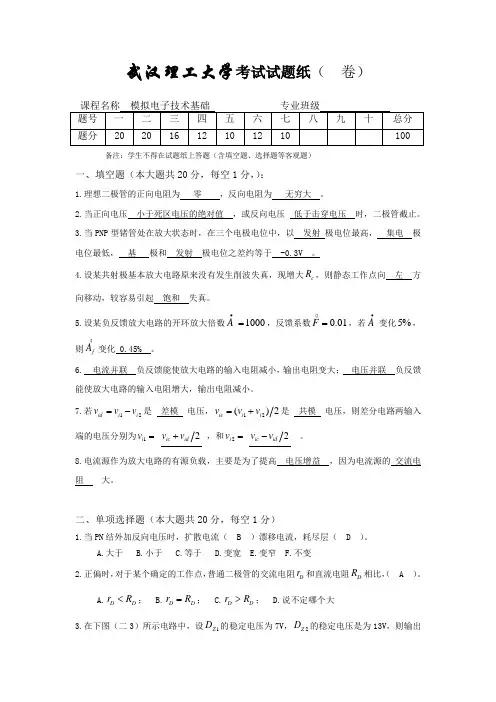 武汉理工大学考试试题纸（ 卷）
课程名称 模拟电子技术基础 专业班级
题号 一 二 三 四 五 六 七 八 九 十 总分
题分 20 20 16 12 10 12 10 100
备注：学生不得在试题纸上答题（含填空题、选择题等客观题）
一、填空题（本大题共20分，每空1分，）：
1.理想二极管的正向电阻为 零 ，反向电阻为 无穷大 。
2.当正向电压 小于死区电压的绝对值 ，或反向电压 低于击穿电压 时，二极管截止。
3.当PNP型锗管处在放大状态时，在三个电极电位中，以 发射 极电位最高， 集电 极
电位最低， 基 极和 发射 极电位之差约等于 -0.3V 。
4.设某共射极基本放大电路原来没有发生削波失真，现增大Rc，则静态工作点向 左 方
向移动，较容易引起 饱和 失真。
5.设某负反馈放大电路的开环放大倍数Ȧ =1000，反馈系数F̊ =0.01，若Ȧ 变化5%，
则Åf 变化 0.45% 。
6. 电流并联 负反馈能使放大电路的输入电阻减小，输出电阻变大； 电压并联 负反馈
能使放大电路的输入电阻增大，输出电阻减小。
7.若vid = vi1 − vi2是 差模 电压，vic = (vi1 + vi2)/2是 共模 电压，则差分电路两输入
端的电压分别为vi1 = vic + vid/2 ，和vi2 = vic − vid/2 。
8.电流源作为放大电路的有源负载，主要是为了提高 电压增益 ，因为电流源的 交流电
阻 大。
二、单项选择题（本大题共20分，每空1分）
1.当PN结外加反向电压时，扩散电流（ B ）漂移电流，耗尽层（ D ）。
A.大于 B.小于 C.等于 D.变宽 E.变窄 F.不变
2.正偏时，对于某个确定的工作点，普通二极管的交流电阻rD和直流电阻RD相比，（ A ）。
A.rD < RD； B.rD = RD； C.rD > RD； D.说不定哪个大
3.在下图（二3）所示电路中，设DZ1的稳定电压为7V，DZ2的稳定电压是为13V，则输出